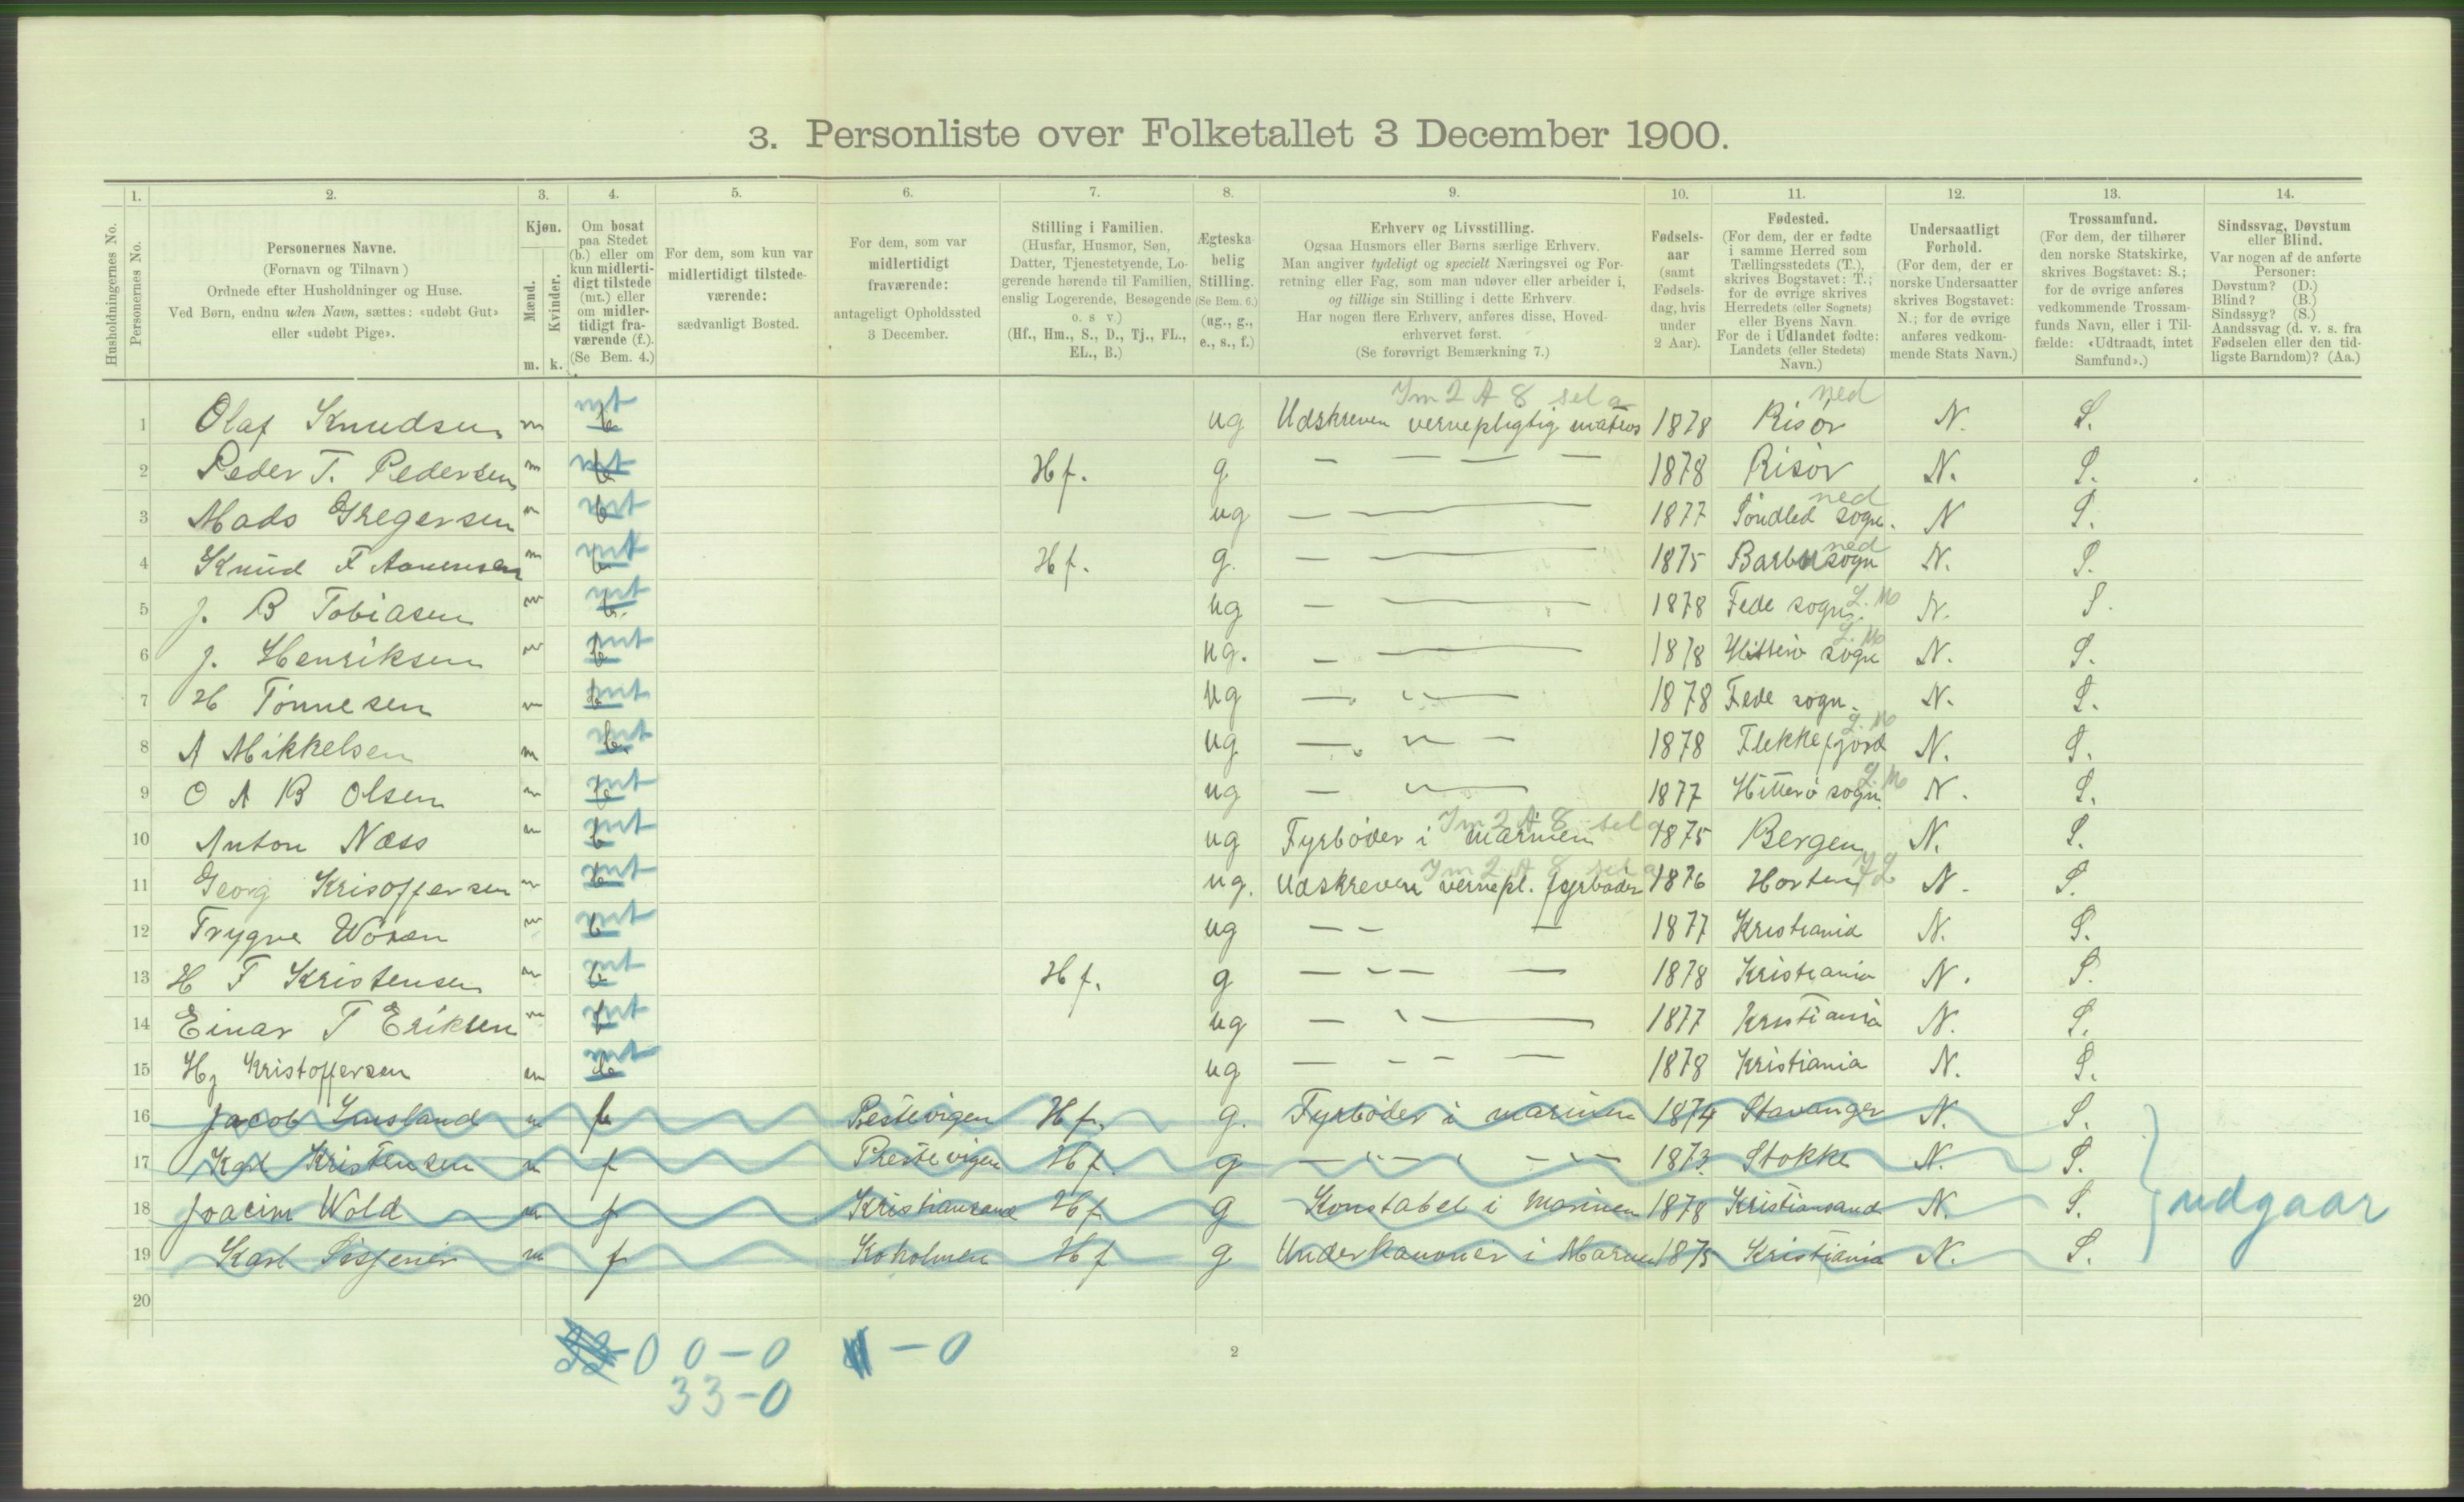 3. Personliste over Folketallet 3 December 1900.
1. 2. 3. 4. 5. 6. 7. 8. 9. 10. 11. 12. 13. 14.
Husholdningernes No.
Personernes No.
Personernes Navne.
(Fornavn og Tilnavn)
Ordnede efter Husholdninger og Huse.
Ved Børn, endnu uden Navn, sættes: «udøbt Gut»
eller «udøbt Pige».
Kjøn.
Mænd.
Kvinder.
m. k.
Om bosat
paa Stedet
(b.) eller om
kun midlerti-
digt tilstede
(mt.) eller
om midler-
tidigt fra-
værende (f.).
(Se Bem. 4.)
For dem, som kun var
midlertidigt tilstede-
værende:
sædvanligt Bosted.
For dem, som var
midlertidigt
fraværende:
antageligt Opholdssted
3 December.
Stilling i Familien.
(Husfar, Husmor, Søn,
Datter, Tjenestetyende, Lo-
gerende hørende til Familien,
enslig Logerende, Besøgende
o. s v.)
(Hf., Hm., S., D., Tj., FL.,
EL., B.)
Ægteska-
belig
Stilling.
(Se Bem. 6.)
(ug., g.,
e., s., f.)
Erhverv og Livsstilling.
Ogsaa Husmors eller Børns særlige Erhverv.
Man angiver tydeligt og specielt Næringsvei og For-
retning eller Fag, som man udøver eller arbeider i,
og tillige sin Stilling i dette Erhverv.
Har nogen flere Erhverv, anføres disse, Hoved-
erhvervet først.
(Se forøvrigt Bemærkning 7.)
Fødsels-
aar
(samt
Fødsels-
dag, hvis
under
2 Aar).
Fødested.
(For dem, der er fødte
i samme Herred som
Tællingsstedets (T.),
skrives Bogstavet: T.;
for de øvrige skrives
Herredets (eller Sognets)
eller Byens Navn.
For de i Udlandet fødte:
Landets (eller Stedets)
Navn.)
Undersaatligt
Forhold.
(For dem, der er
norske Undersaatter
skrives Bogstavet:
N.; for de øvrige
anføres vedkom-
mende Stats Navn.)
Trossamfund.
(For dem, der tilhører
den norske Statskirke,
skrives Bogstavet: S.;
for de øvrige anføres
vedkommende Trossam-
funds Navn, eller i Til-
fælde: «Udtraadt, intet
Samfund».)
Sindssvag, Døvstum
eller Blind.
Var nogen af de anførte
Personer:
Døvstum? (D.)
Blind? (B.)
Sindssyg? (S.)
Aandssvag (d. v. s. fra
Fødselen eller den tid-
ligste Barndom)? (Aa.)
mt Im 2 A 8 sel a ned
1 Olaf Knudsen m b ug Udskreven vernepligtig matros 1878 Risør N. S.
2 Peder T. Pedersen m b mt Hf. g — — — — 1878 Risør N. S.
3 Mads Gregersen m b mt ug — — 1877 Søndled sogn. ned N S.
4 Knud F Aanensen m b mt Hf. g. — — 1875 Barbu sogn ned N. S.
5 J. B Tobiasen m b. mt ug — — 1878 Fede sogn. L. M N. S.
6 J. Henriksen m b mt ug. — — 1878 Hitterø sogn L. M N. S.
7 H Tønnesen m b mt ug — — 1878 Fede sogn. N. S.
8 A Mikkelsen m b. mt ug — — 1878 Flekkefjord L. M N. S.
9 O A B Olsen m b mt ug — — 1877 Hitterø sogn. L. M N. S.
10 Anton Næss m b mt ug Fyrbøder i marinen Im 2 A 8 sel a 1875 Bergen N. S.
11 Georg Krisoffersen m b mt ug. Udskreven vernepl. fyrbøder Im 2 A 8 sel a 1876 Horten N. S.
12 Trygve m b mt ug — — — 1877 Kristiania N. S.
13 H F Kristensen m b mt Hf. g — — — 1878 Kristiania N. S.
14 Einar T Eriksen m b mt ug — — 1877 Kristiania N. S.
15 Hj Kristoffersen m b mt ug — — — 1878 Kristiania N. S.
16 Jacob m f Prestevigen Hf. g. Fyrbøder i marinen 1874 Stavanger N. S.
17 Karl Kristensen m f Prestevigen Hf. g — — — 1873 Stokke N. S.
18 Joacim Wold m f Kristiansand Hf g Konstabel i Marinen 1878 Kristiansand N. S. udgaar
19 Karl m f Koholmen Hf g Underkanoner i Marinen 1875 Kristiania N. S.
20
0 0 - 0 - 0
33 - 0
2